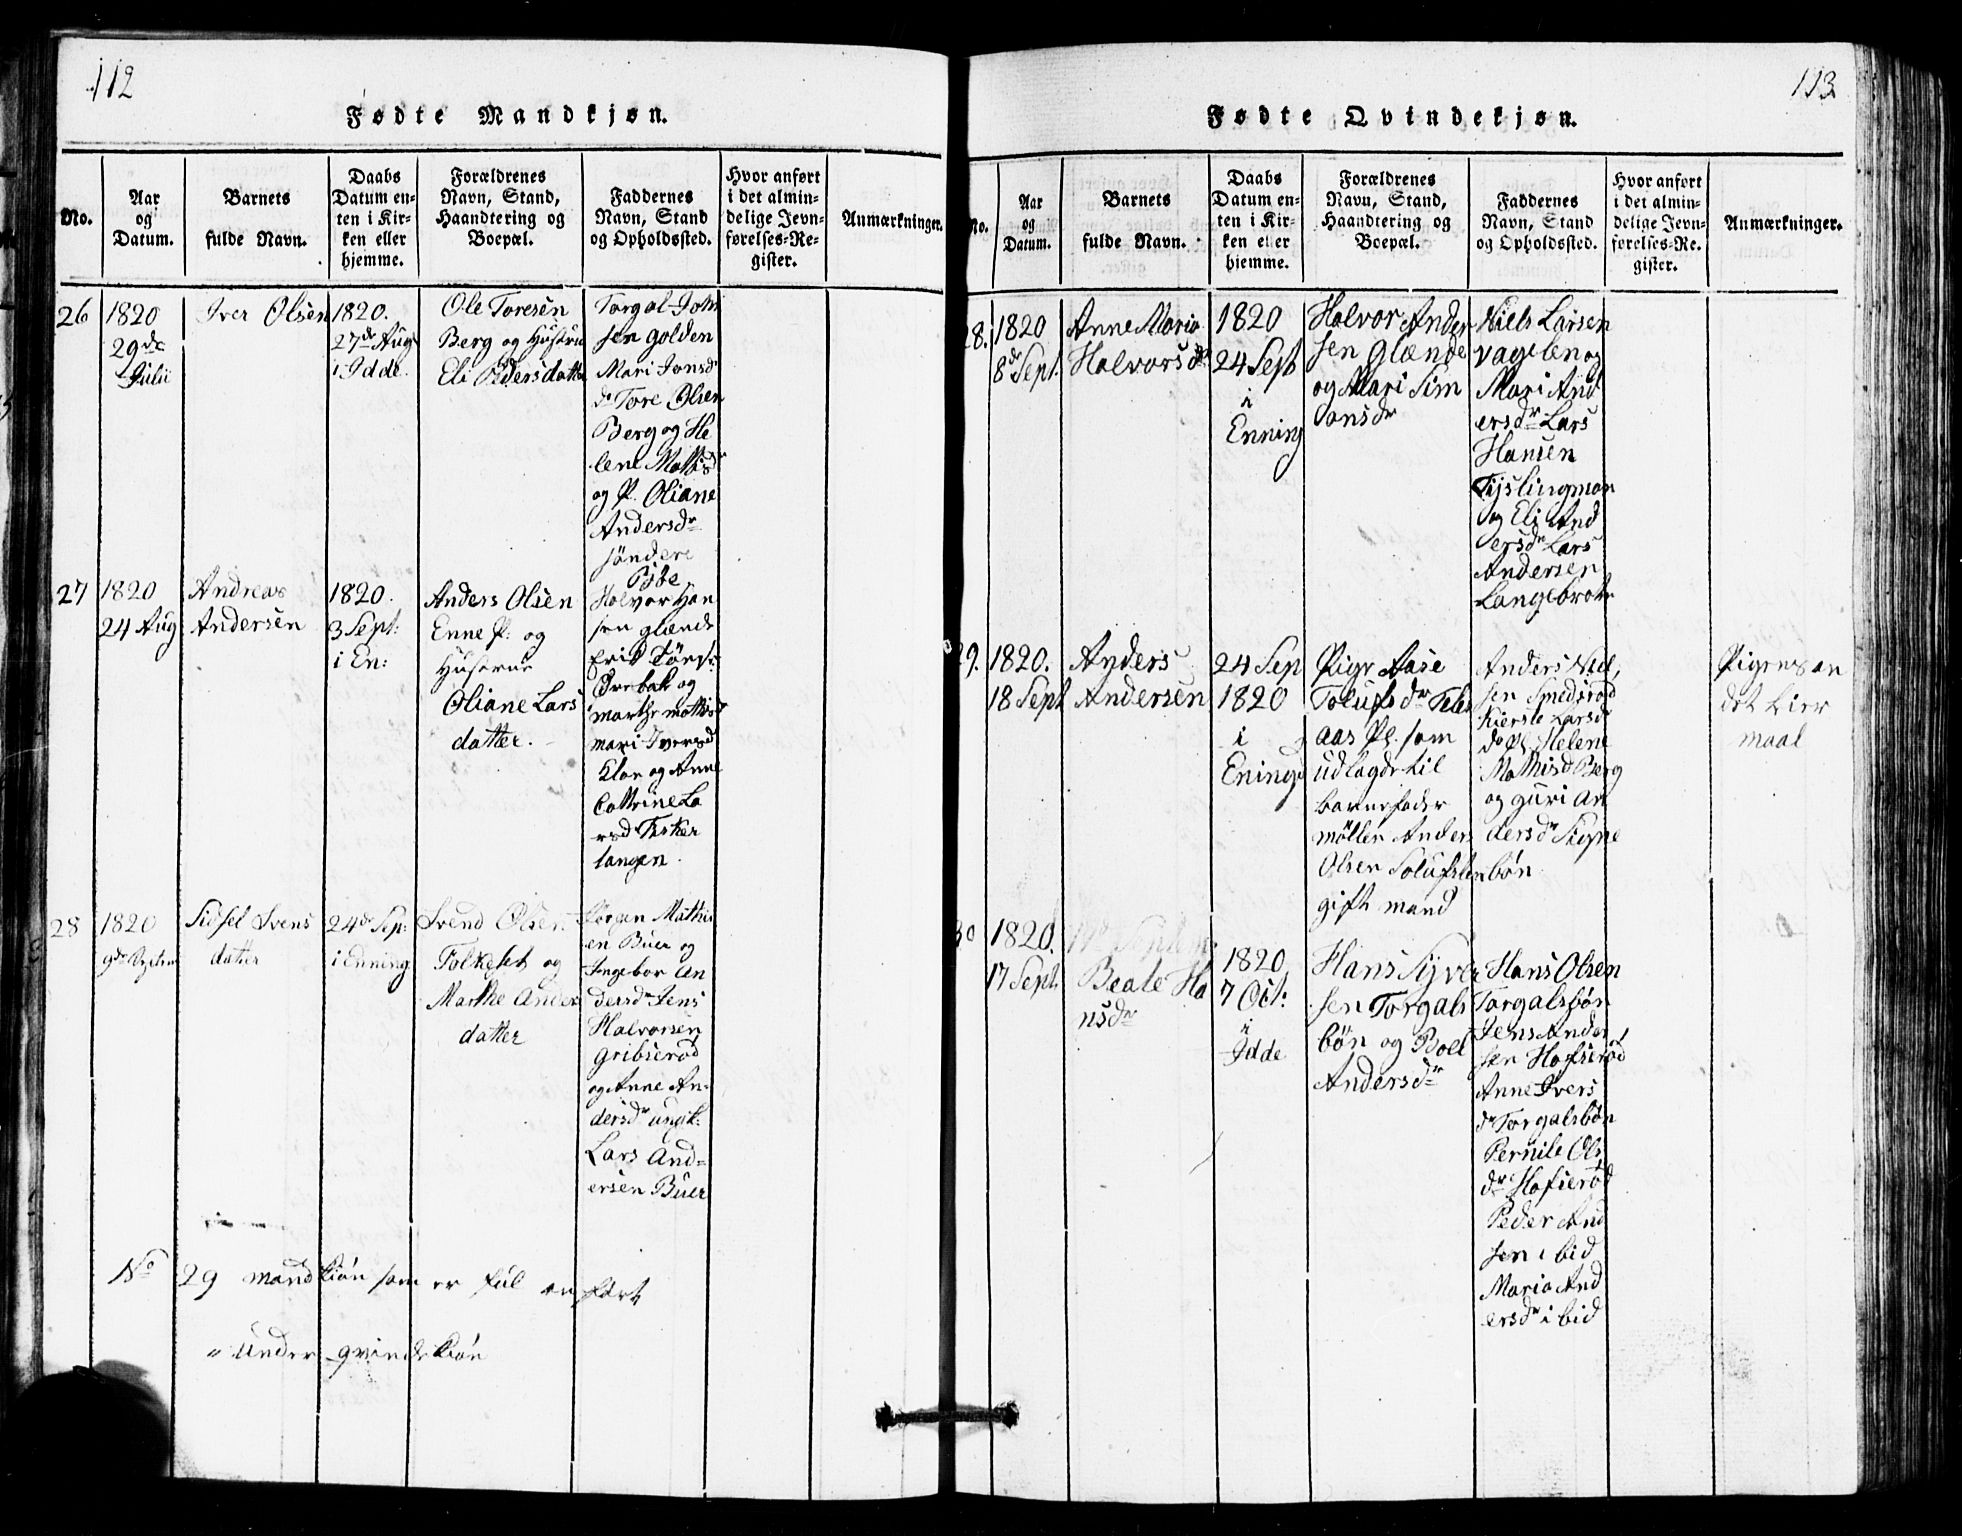 112
Fødte Mandkjøn.
No.
Aar
og
Datum.
Barnets
fulde Navn.
Daabs
Datum en-
ten i Kir-
ken eller
hjemme.
Forældrenes
Navn, Stand,
Haandtering og
Boepæl.
Faddernes
Navn, Stand
og Opholdssted.
Hvor anført
i det almin-
delige Jevn-
førelses-Re-
gister.
Anmærkninger.
26
1820
29de
Julii
Iver Olsen
1820.
27de Aug
i Idde
Ole Toresen
Berg og Hustru
Eli Pedersdatter
Torgal John
sen golden
Mari Jonsd
do Tore Olsen
Berg og He
lene Mathisd
og P. Oliane
Andersdr
söndere
27
1820
24 Aug
Andreas
Andersen
1820.
3 Sept:
i En:
Anders Olsen
Enne P: og
Hustrue
Oliane Lars
datter.
Halvor Han
sen glænde
og
marthe mathisd
mari Iversd
og Anne
Cattrine La
rsd
langen.
28
1820
Sidsel Svens
datter
24de Sep:
i Enning
Svend Olsen
og
Marthe Anders
datter
Jörgen Mathis
en Buer og
Ingebor An
dersdr Jens
Halvorsen
gribseröd
og Anne An-
dersdr ungk:
Lars And=
ersen Buer
No 29 mandkiön som er fül anfört
" under qvindekiön
113
Fødte Qvindekjøn.
No.
Aar
og
Datum.
Barnets
fulde Navn.
Daabs
Datum en-
ten i Kir-
ken eller
hjemme.
Forældrenes
Navn, Stand,
Haandtering og
Boepæl.
Faddernes
Navn, Stand
og Opholdssted.
Hvor anført
i det almin-
delige Jevn-
førelses-Re-
gister.
Anmærkninger.
28.
1820
8de Sept.
Anne Maria
Halvorsdr
1820
24 Sept
i
Enning
Halvor Ander
sen Glænde
og Mari Sim
onsdr
Niels Larsen
og
Mari And
ersdr Lars
Hansen
Tyslingmon
og Eli And
ersdr Lars
Andersen
Langebraten
29.
1820.
18 Sept
Anders
Andersen
24 Sep
1820
i
Ening
Pige Aase
aas Pl. som
udlagde til
barnefader
möller Anders
Olsen
gift mand
Anders Niel
sen Smedsröd
Kierste Larsd
do Pl. Helene
Mathisd Berg
og guri An
dersdr
bön
Pigens an
det Lier
maal
30
1820.
17 Sept.
Beate Ha
nsdr
1820
7 Oct:
i
Idde
Hans Syver
sen Torgals
bön og Boel
Andersdr
Hans Olsen
Torgalsbön
Jens Ander
sen Hafsröd
Anne Ivers
dr Torgalsbön
Pernile Ols
dr Hafsröd
Peder And
sen ibid
Maria And
ersdr ibid